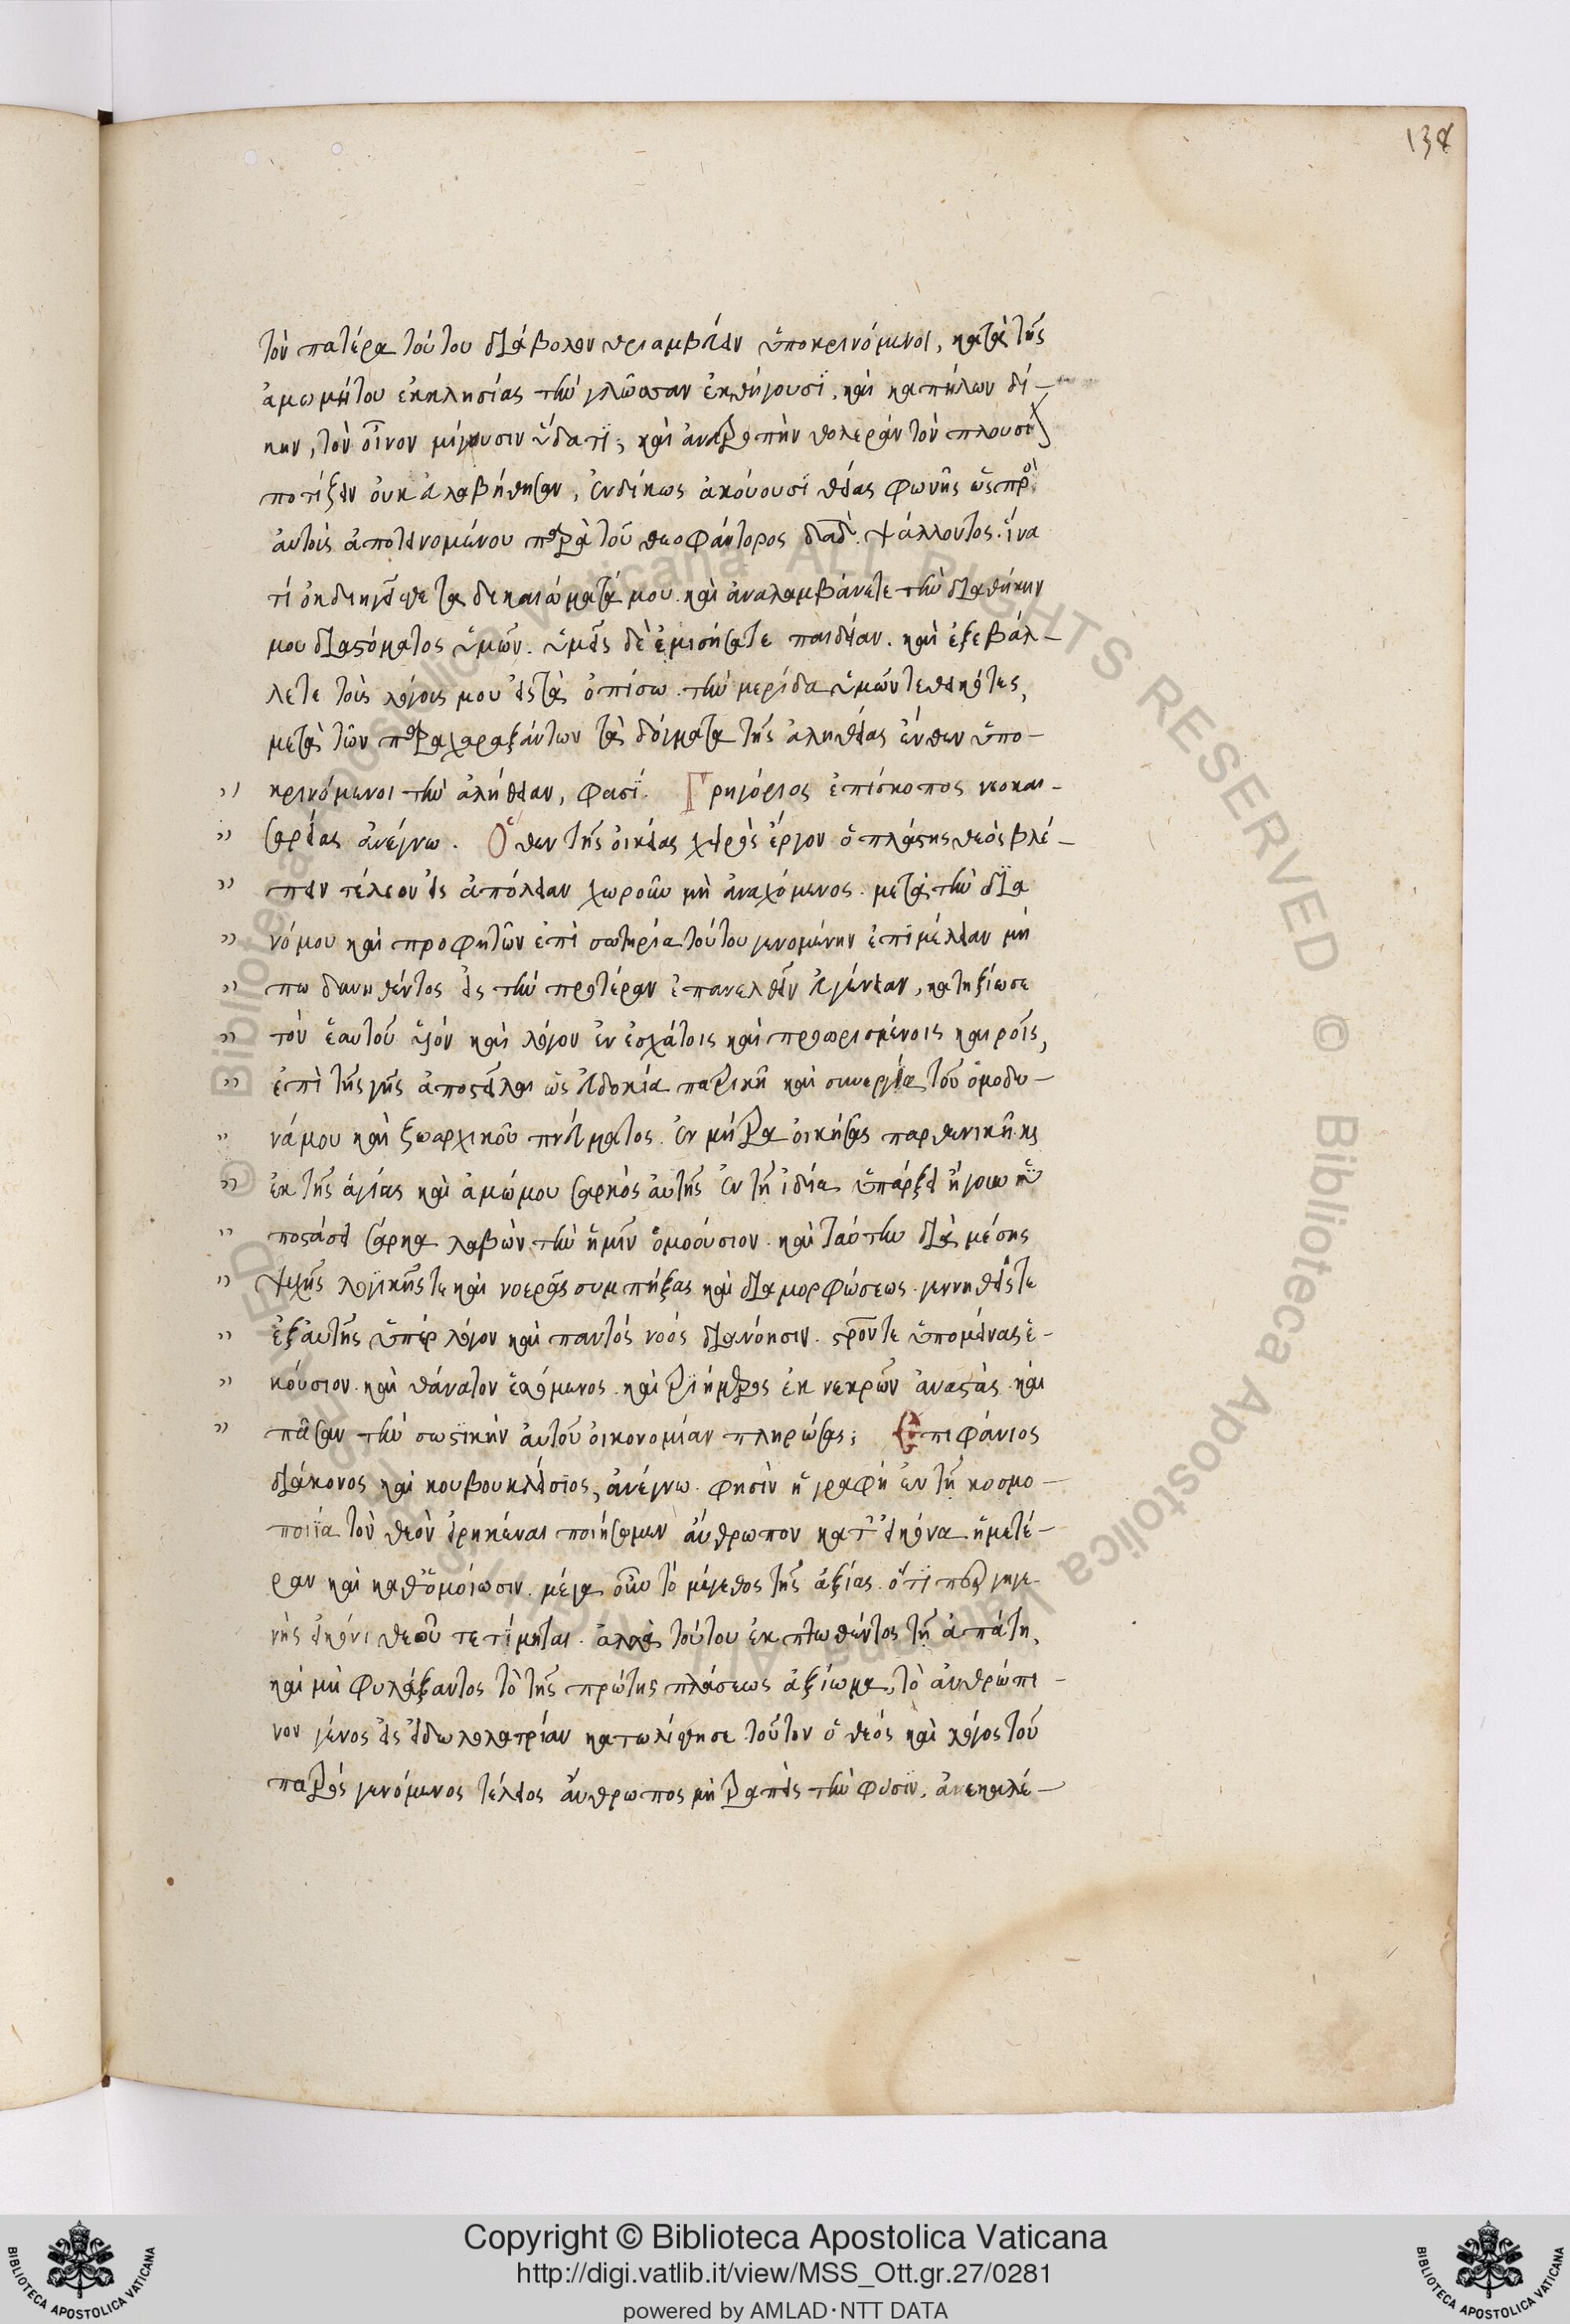 138
τὸν πατέρα τούτου διάβολον θριαμβεύειν ὑποκρινόμενοι, κατὰ τῆς
ἀμωμήτου ἐκκλησίας τὴν γλῶσσαν ἐκθήγουσι, καὶ καπήλων δί-
κην, τὸν οἶνον μίγουσιν ὕδατι, καὶ ἀνατροπὴν θολερὰν τὸν πλησίον
ποτίζειν οὐκ εὐλαβήθησαν, ἐνδίκως ἀκούουσι θείας φωνῆς ὡς πρὸς
αὐτοὺς ἀποτεινομένου παρὰ τοῦ θεοφάντορος δαδ. ψάλλοντος. ἵνα
τί ἐκδιηγεῖσθε τὰ δικαιώματά μου. καὶ ἀναλαμβάνετε τὴν διαθήκην
μου διὰ στόματος ὑμῶν. ὑμεῖς δὲ ἐμισήσατε παιδείαν. καὶ ἐξεβάλ-
λετε τοὺς λόγους μου εἰς τὰ ὀπίσω. τὴν μερίδα ὑμῶν τεθεικότες,
μετὰ τῶν παραχαραξάντων τὰ δόγματα τῆς ἀληθείας ἔνθεν ὑπο-
κρινόμενοι τὴν ἀλήθειαν, φασί. Γρηγόριος ἐπίσκοπος νεοκαι-
σαρείας ἀνέγνω. Ὅθεν τῆς οἰκείας χειρὸς ἔργον ὁ πλάστης θεὸς βλέ-
πειν τέλεον εἰς ἀπόλειαν χωροῦν μὴ ἀναχόμενος. μετὰ τὴν διὰ
νόμου καὶ προφητῶν ἐπὶ σωτηρία τούτου γενομένην ἐπιμέλειαν μή
πω δυνηθέντος εἰς τὴν προτέραν ἐπανελθεῖν εὐγένειαν, κατηξίωσε
τὸν ἑαυτοῦ υἱὸν καὶ λόγον ἐν ἐσχάτοις καὶ προωρισμένοις καιροῖς,
ἐπὶ τῆς γῆς ἀποστεῖλαι ὡς εὐδοκία πατρικῆ καὶ συνεργεία τοῦ ὁμοδυ-
νάμου καὶ ζωαρχικοῦ πνεύματος. ἐν μήτρα οἰκήσας παρθενικῆ. κς
ἐκ τῆς ἁγίας καὶ ἀμώμου σαρκὸς αὐτῆς ἐν τῆ ἰδία ὑπάρξει ἤγουν ὑ
ποστάσει σάρκα λαβὼν τὴν ἡμῖν ὁμοούσιον. καὶ ταύτην διὰ μέσης
ψυχῆς λογικῆς τε καὶ νοερᾶς συμπήξας καὶ διαμορφώσεως. γεννηθείς τε
ἐξ αὐτῆς ὑπὲρ λόγον καὶ παντὸς νοὸς διανόησιν. στρόν τε ὑπομείνας ἑ-
κούσιον. καὶ θάνατον ἑλόμενος. καὶ τριήμερος ἐκ νεκρῶν ἀναστάς. καὶ
πᾶσαν τὴν σωστικὴν αὐτοῦ οἰκονομίαν πληρώσας; Ἐπιφάνιος
διάκονος καὶ κουβουκλείσιος, ἀνέγνω. φησὶν ἡ γραφὴ ἐν τῆ κοσμο-
ποιΐα τὸν θεὸν εἰρηκέναι ποιήσωμεν ἄνθρωπον κατ' εἰκόνα ἡμετέ-
ραν καὶ καθ' ὁμοίωσιν. μέγα οὖν τὸ μέγεθος τῆς ἀξίας. ὅτι περ γηγε-
νὴς εἰκόνι θεοῦ τετίμηται. ἀλλὰ τούτου ἐκπτωθέντος τῆ ἀπάτη,
καὶ μὴ φυλάξαντος τὸ τῆς πρώτης πλάσεως ἀξίωμα, τὸ ἀνθρώπι-
νον γένος εἰς εἰδωλολατρίαν κατωλίσθησε. τοῦτον ὁ θεὸς καὶ λόγος τοῦ
πατρὸς γενόμενος τέλειος ἄνθρωπος μὴ τραπεὶς τὴν φύσιν, ἀνεκαλέ-
Copyright © Biblioteca Apostolica Vaticana
http://digi.vatlib.it/view/MSS_Ott.gr.27/0281
powered by AMLAD·NTT DATA